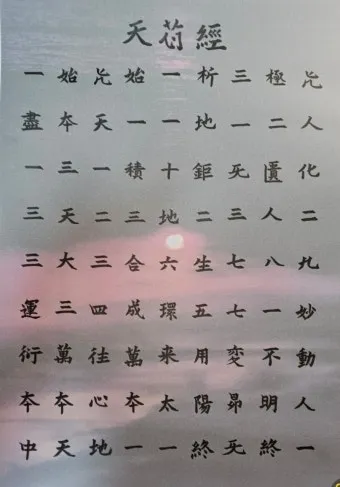 天苻經
一始无始一析三極无
盡夲天一一地一二人
一三一積十鉅无匱化
三天二三地二三人二
三大三合六生七八九
運三四成環五七一妙
衍萬往萬来用變不動
夲夲心夲太陽昻明人
中天地一一終无終一